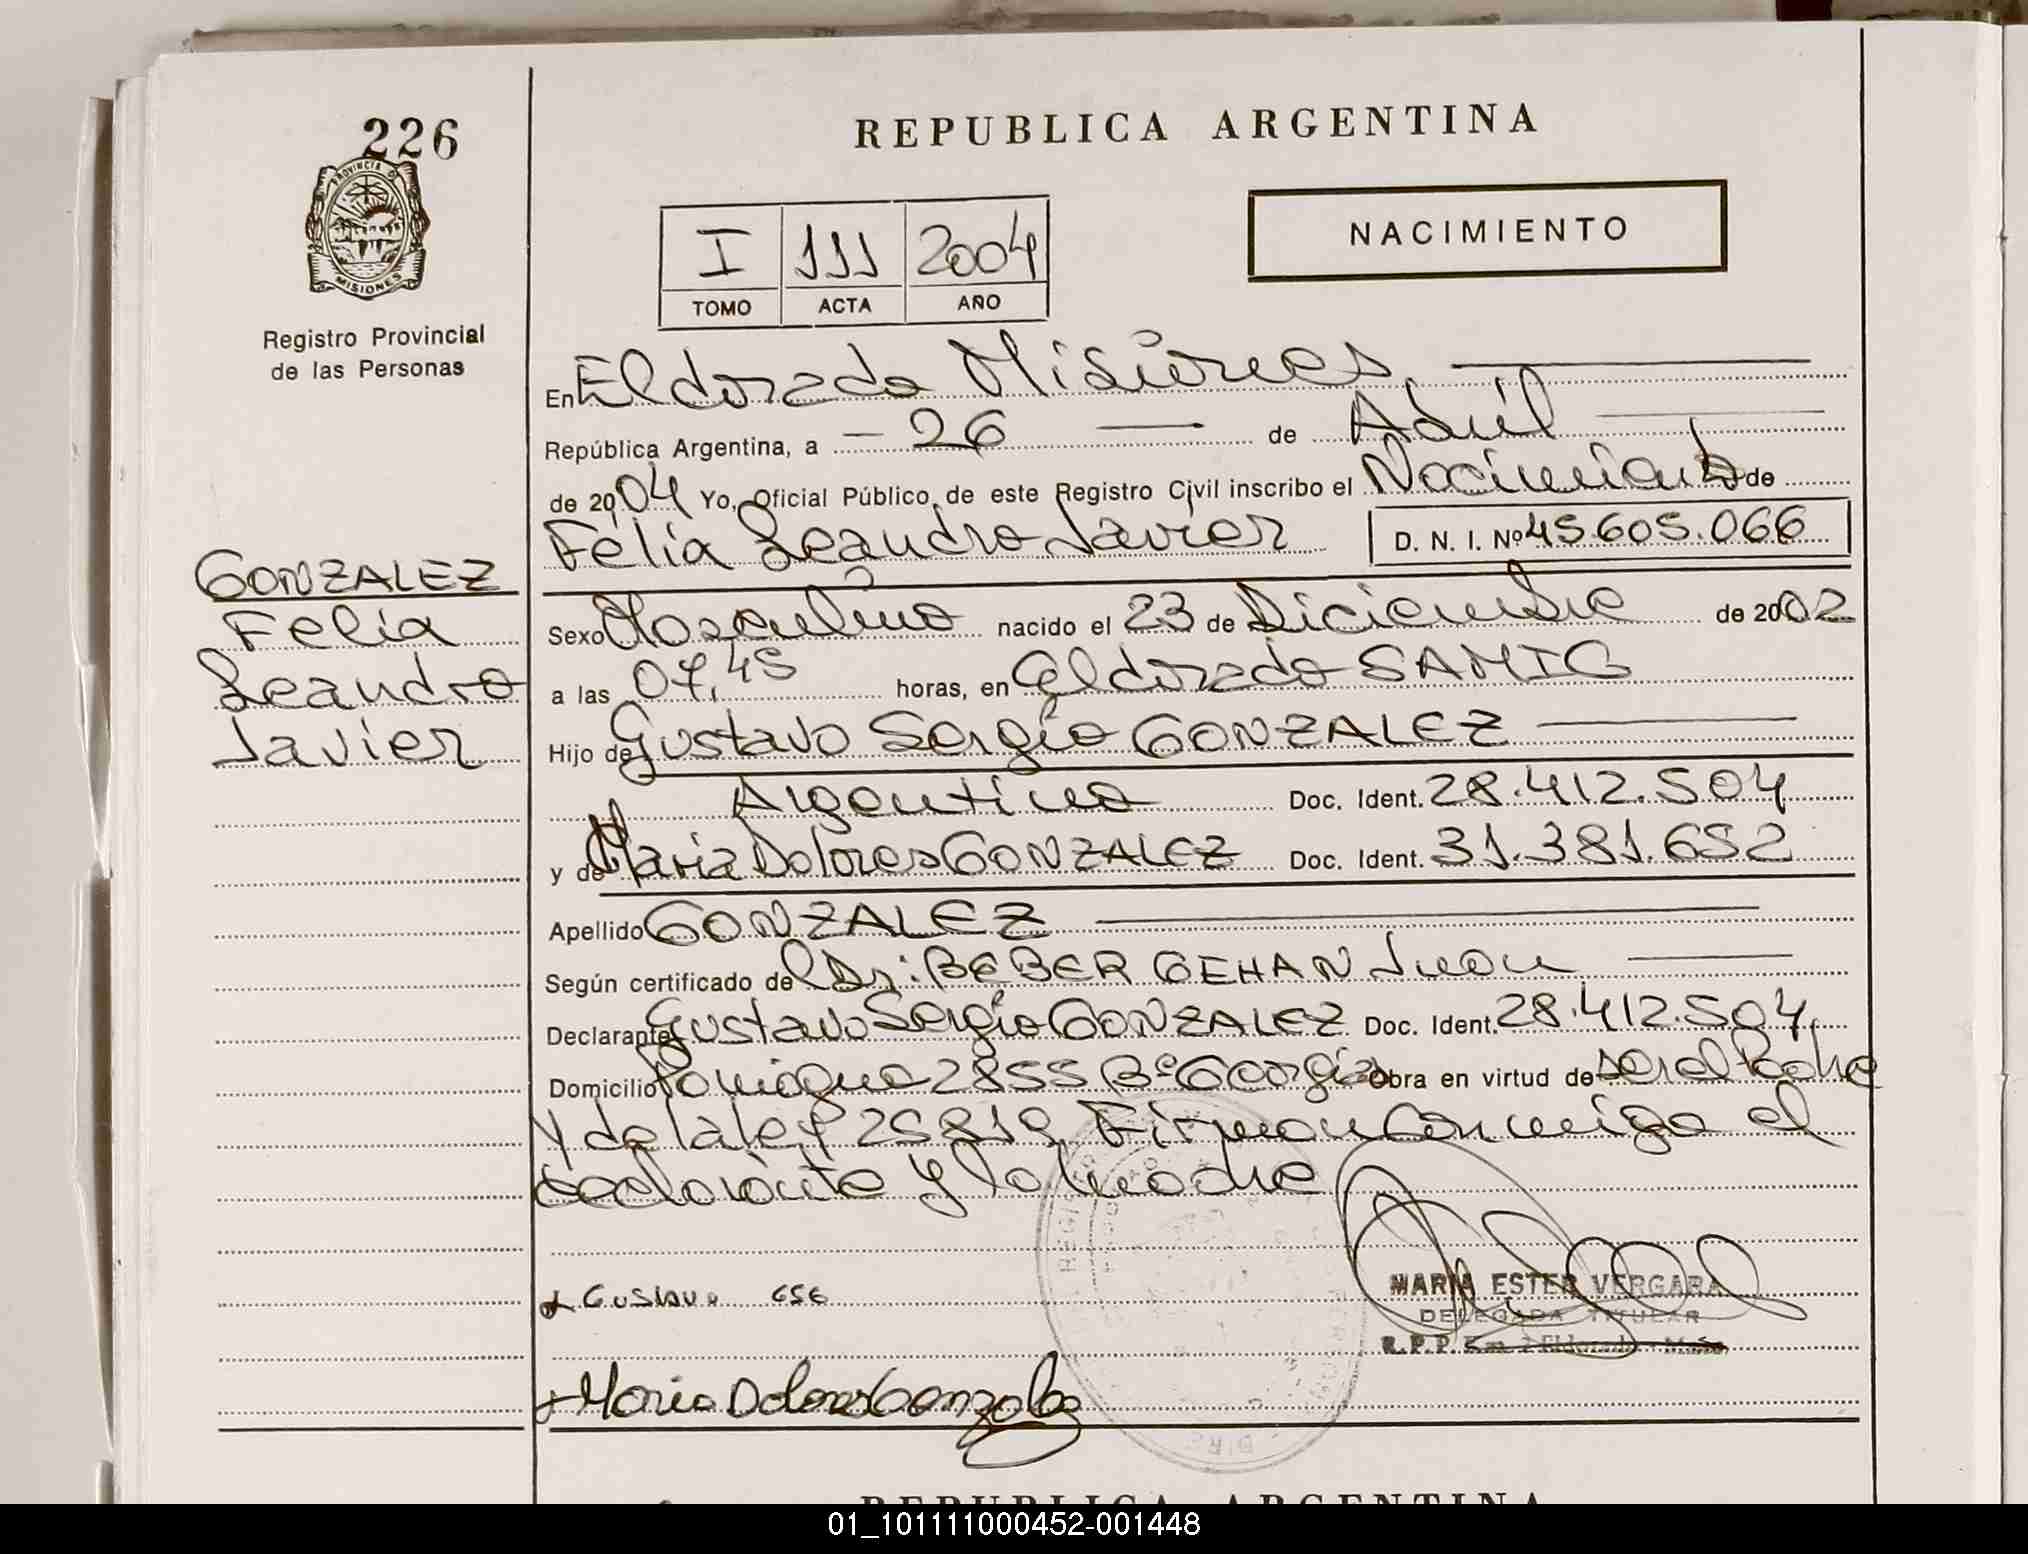 226
PROVINCIA D
MISIONES
Registro Provincial
de las Personas
REPUBLICA ARGENTINA
NACIMIENTO
I 111 2004
TOMO ACTA AÑO
En Eldorado Misiones
República Argentina, a - 26 — de Abril
de 2004 Yo, Oficial Público de este Registro Civil inscribo el Nacimiento de
Felia Leandro Javier D. N. I. Nº 45.605.066
GONZALEZ
Felia
Leandro
Javier
Sexo Masculino nacido el 23 de Diciembre de 2002
a las 07,45 horas, en Eldorado SAMIC
Hijo de Gustavo Sergio GONZALEZ
Argentino Doc. Ident. 28.412.504
y de Maria Dolores GONZALEZ Doc. Ident. 31.381.652
Apellido GONZALEZ
Según certificado del Dr: BEBER GEHAN Juan
Declarante Gustavo Sergio GONZALEZ Doc. Ident. 28.412.504
Domicilio 2855 Bº Georgia Obra en virtud de ser el Padre
y de la ley 25819, Firman conmigo el
declarante y la madre
Gustavo
MARIA ESTER VERGARA
DELEGADA TITULAR
R.P.P.
Maria Dolores Gonzalez
REPUBLICA ARGENTINA
01_101111000452-001448